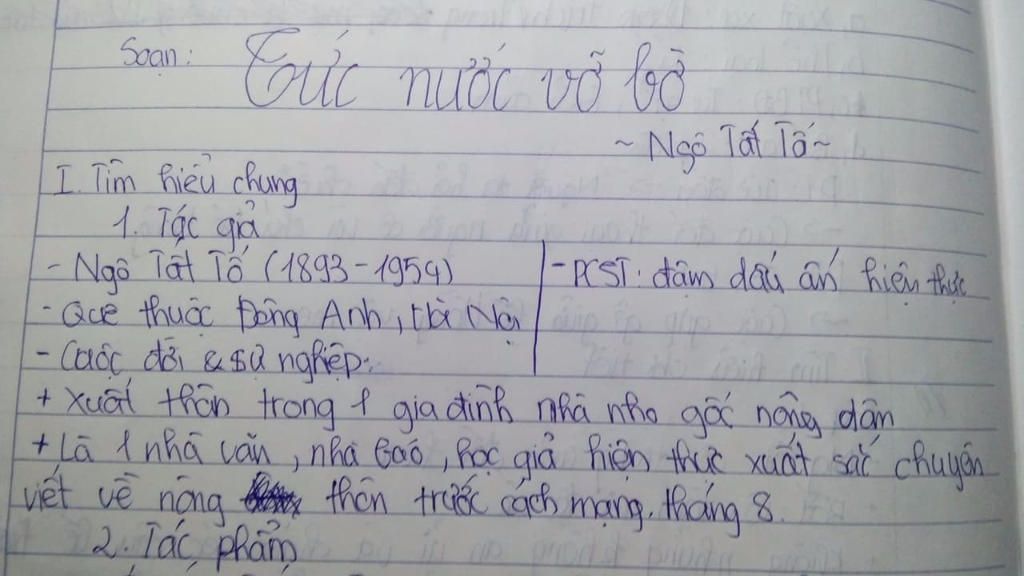 Soạn: Tức nước vỡ bờ
~ Ngô Tất Tố ~
I. Tìm hiểu chung
1. Tác giả
- Ngô Tất Tố (1893-1954)
- Quê thuộc Đông Anh, Hà Nội
- Cuộc đời & sự nghiệp:
- PCST: đậm dấu ấn hiện thực
+ xuất thân trong 1 gia đình nhà nho gốc nông dân
+ Là 1 nhà văn, nhà báo, học giả hiện thực xuất sắc chuyên
viết về nông thôn trước cách mạng tháng 8.
2. Tác phẩm